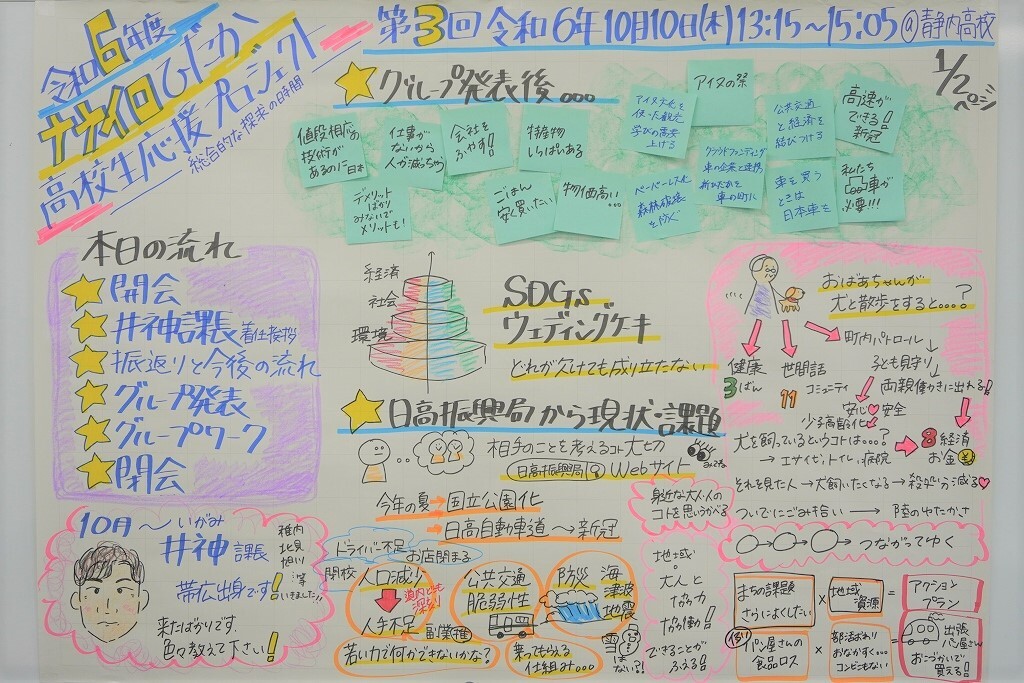 令和6年度
ナナイロひだか
高校生応援プロジェクト
総合的な探求の時間
第3回 令和6年10月10日(木)13:15~15:05@静内高校
1/2ページ
グループ発表後...
値段相応の
技術が
あるのに日本
仕事が
ないから
人が減っちゃう
会社を
ふやす!!
特産物
いっぱいある
アイヌ文化を
使った観光
学びの需要
上げる
アイヌの祭
公共交通
と経済を
結びつける
高速が
できる!
新冠
デメリット
ばかり
みないで
メリットも!
ごはん
安く買いたい
物価高い...
ペーパーレス化
森林破壊
を防ぐ
クラウドファンディング
車の企業と連携
新ひだかを
車の町に
車を買う
ときは
日本車を
私たち
車が
必要!!!
本日の流れ
開会
井神課長 着任挨拶
振返りと今後の流れ
グループ発表
グループワーク
閉会
経済
社会
環境
SDGs
ウェディングケーキ
どれが欠けても成り立たない
おばあちゃんが
犬と散歩をすると...?
町内パトロール
子ども見守り
両親働きに出れる!!
健康
3ばん
世間話
11
コミュニティ
安心 安全
少子高齢化
8 経済
お金
犬を飼っているというコトは...?
→エサ代、トイレ、病院
それを見た人→犬飼いたくなる→殺処分減る
ついでにごみ拾い→陸のゆたかさ
つながってゆく
日高振興局から現状・課題
相手のことを考えるコト大切
日高振興局 Webサイト
みてね
今年の夏→国立公園化
→日高自動車道~新冠
身近な大人の
コトを思いうかべる
10月~いがみ
井神課長
帯広出身です!
稚内
北見
旭川
等
いきました!!
来たばかりです。
色々教えて下さい!
ドライバー不足
お店閉まる
閉校
人口減少
道内でも
深刻
人手不足
副業・兼
公共交通
脆弱性
防災 海
津波
地震
雪
はない?!
若い力で何かできないかな?
乗ってもらえる
仕組み...
地域・
大人と
協力
協働!!
できることが
ふえる!!
まちの課題
さらによくしたい
×
地域
資源
=
アクション
プラン
(例)
パン屋さんの
食品ロス
×
部活おわり
おなかすく...
コンビニもない
=
出張
パン屋さん
おこづかいで
買える!!